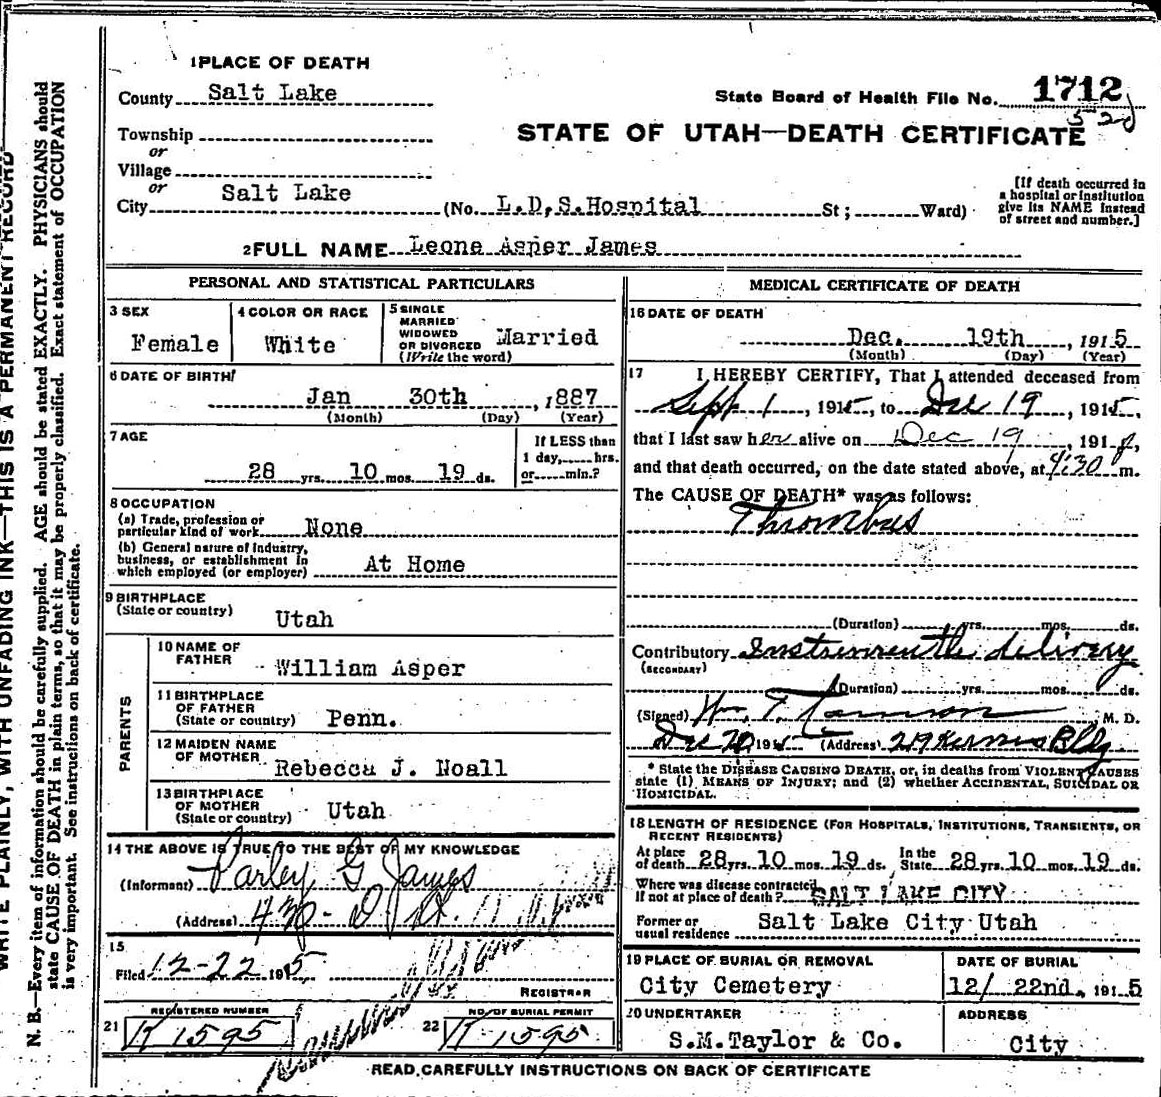 1 PLACE OF DEATH
County Salt Lake
State Board of Health File No. 1712
Township
STATE OF UTAH—DEATH CERTIFICATE
or
Village
or
City Salt Lake (No. L.D.S.Hospital St ; Ward)
[If death occurred in
a hospital or institution
give its NAME instead
of street and number.]
2 FULL NAME Leone Asper James
PERSONAL AND STATISTICAL PARTICULARS
3 SEX
Female
4 COLOR OR RACE
White
5 SINGLE
MARRIED
WIDOWED
OR DIVORCED
(Write the word)
Married
6 DATE OF BIRTH
Jan 30th , 1887
(Month) (Day) (Year)
7 AGE
28 yrs. 10 mos. 19 ds.
If LESS than
1 day, hrs.
or min.?
8 OCCUPATION
(a) Trade, profession or
particular kind of work None
(b) General nature of industry,
business, or establishment in
which employed (or employer) At Home
9 BIRTHPLACE
(State or country)
Utah
PARENTS
10 NAME OF
FATHER
William Asper
11 BIRTHPLACE
OF FATHER
(State or country) Penn.
12 MAIDEN NAME
OF MOTHER
Rebecca J. Noall
13 BIRTHPLACE
OF MOTHER
(State or country) Utah
14 THE ABOVE IS TRUE TO THE BEST OF MY KNOWLEDGE
(Informant) Parley G James
(Address)
15
Filed 12-22 1915
REGISTRAR
REGISTERED NUMBER
21 K 1595
NO. OF BURIAL PERMIT
22 K-1595
MEDICAL CERTIFICATE OF DEATH
16 DATE OF DEATH
Dec. 19th , 1915
(Month) (Day) (Year)
17 I HEREBY CERTIFY, That I attended deceased from
Sept 1 , 1915, to Dec 19 , 1915,
that I last saw her alive on Dec 19 , 191
and that death occurred, on the date stated above, at 4:30 m.
The CAUSE OF DEATH* was as follows:
Thrombus
(Duration) yrs. mos. ds.
Contributory delivery
(SECONDARY)
(Duration) yrs. mos. ds.
(Signed) Wm. T. M. D.
Dec 20 191 (Address) 219 Kearns Bldg
* State the DISEASE CAUSING DEATH, or, in deaths from VIOLENT CAUSES
state (1) MEANS OF INJURY; and (2) whether ACCIDENTAL, SUICIDAL OR
HOMICIDAL.
18 LENGTH OF RESIDENCE (FOR HOSPITALS, INSTITUTIONS, TRANSIENTS, OR
RECENT RESIDENTS)
At place
of death 28 yrs. 10 mos. 19 ds.
In the
State 28 yrs. 10 mos. 19 ds.
Where was disease contracted
if not at place of death? SALT LAKE CITY
Former or
usual residence Salt Lake City Utah
19 PLACE OF BURIAL OR REMOVAL
City Cemetery
DATE OF BURIAL
12/ 22nd. 1915
20 UNDERTAKER
S.M.Taylor & Co.
ADDRESS
City
READ CAREFULLY INSTRUCTIONS ON BACK OF CERTIFICATE
WRITE PLAINLY, WITH UNFADING INK—THIS IS A PERMANENT RECORD
N. B.—Every item of information should be carefully supplied. AGE should be stated EXACTLY. PHYSICIANS should
state CAUSE OF DEATH in plain terms, so that it may be properly classified. Exact statement of OCCUPATION
is very important. See instructions on back of certificate.